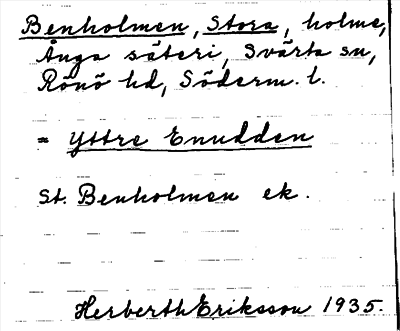 Benholmen, Stora, holme,
Ånga säteri, Svärta sn,
Rönö hd, Söderm. l.
= Yttre Enudden
St. Benholmen ek.
Herberth Eriksson 1935.